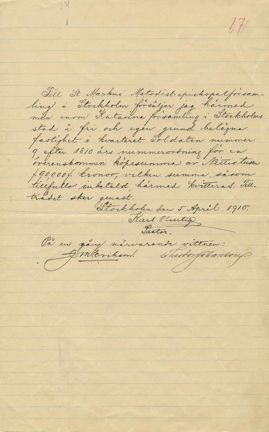 17
Till St Markus Metodistepiskopalförsam-
ling i Stockholm försäljer jag härmed
min inom Katarina församling i Stockholms
stad å fri och egen grund belägna
fastighet i kvarteret Soldaten nummer
9 efter 1810 års nummerordning för en
överenskommen köpesumma av Nittiotusen
(90000) kronor, vilken summa såsom
till fullo inbetald härmed kvitteras. Till-
trädet sker genast.
Stockholm den 5 April 1910.
Karl
Pastor.
På en gång närvarande vittnen: